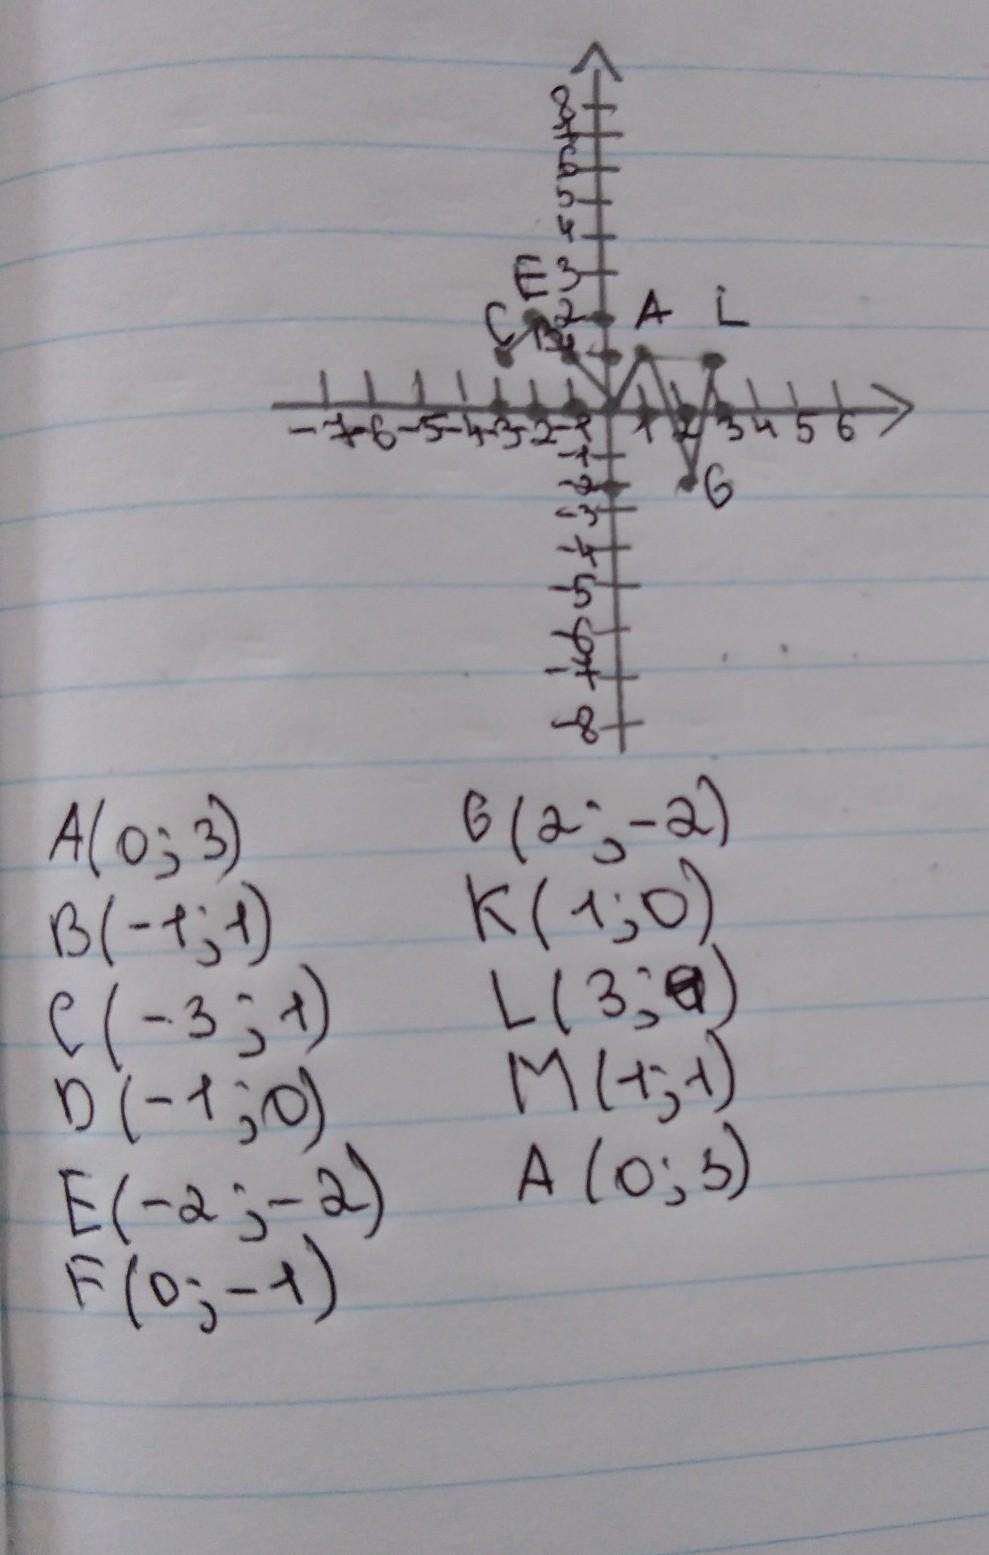 8
7
6
5
4
E 3
C B 2 A L
1
-7 -6 -5 -4 -3 -2 -1 1 2 3 4 5 6
-1
-2 G
-3
-4
-5
-6
-7
-8
A(0;3)
B(-1;1)
C(-3;1)
D(-1;0)
E(-2;-2)
F(0;-1)
G(2;-2)
K(1;0)
L(3;1)
M(1;1)
A(0;3)